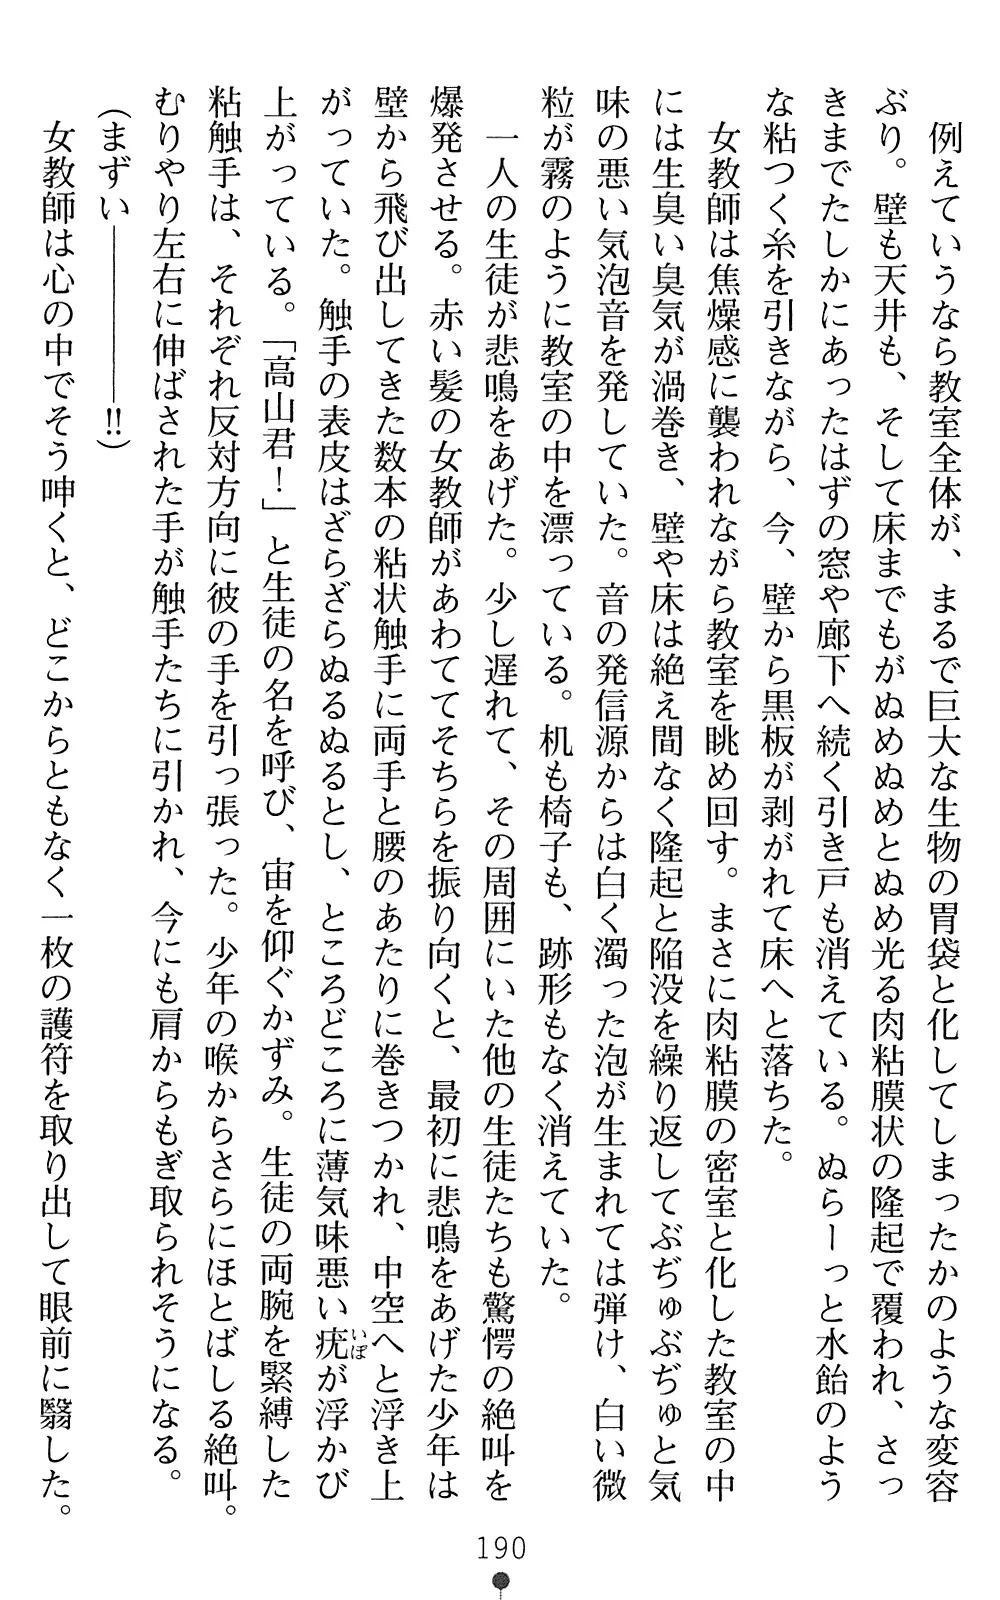 例えていうなら教室全体が、まるで巨大な生物の胃袋と化してしまったかのような変容
ぶり。壁も天井も、そして床までもがぬめぬめとぬめ光る肉粘膜状の隆起で覆われ、さっ
きまでたしかにあったはずの窓や廊下へ続く引き戸も消えている。ぬらーっと水飴のよう
な粘つく糸を引きながら、今、壁から黒板が剥がれて床へと落ちた。
女教師は焦燥感に襲われながら教室を眺め回す。まさに肉粘膜の密室と化した教室の中
には生臭い臭気が渦巻き、壁や床は絶え間なく隆起と陥没を繰り返してぶぢゅぶぢゅと気
味の悪い気泡音を発していた。音の発信源からは白く濁った泡が生まれては弾け、白い微
粒が霧のように教室の中を漂っている。机も椅子も、跡形もなく消えていた。
一人の生徒が悲鳴をあげた。少し遅れて、その周囲にいた他の生徒たちも驚愕の絶叫を
爆発させる。赤い髪の女教師があわててそちらを振り向くと、最初に悲鳴をあげた少年は
壁から飛び出してきた数本の粘状触手に両手と腰のあたりに巻きつかれ、中空へと浮き上
がっていた。触手の表皮はざらざらぬるぬるとし、ところどころに薄気味悪い疣いぼが浮かび
上がっている。「高山君！」と生徒の名を呼び、宙を仰ぐかずみ。生徒の両腕を緊縛した
粘触手は、それぞれ反対方向に彼の手を引っ張った。少年の喉からさらにほとばしる絶叫。
むりやり左右に伸ばされた手が触手たちに引かれ、今にも肩からもぎ取られそうになる。
（まずい――――‼）
女教師は心の中でそう呻くと、どこからともなく一枚の護符を取り出して眼前に翳した。
190